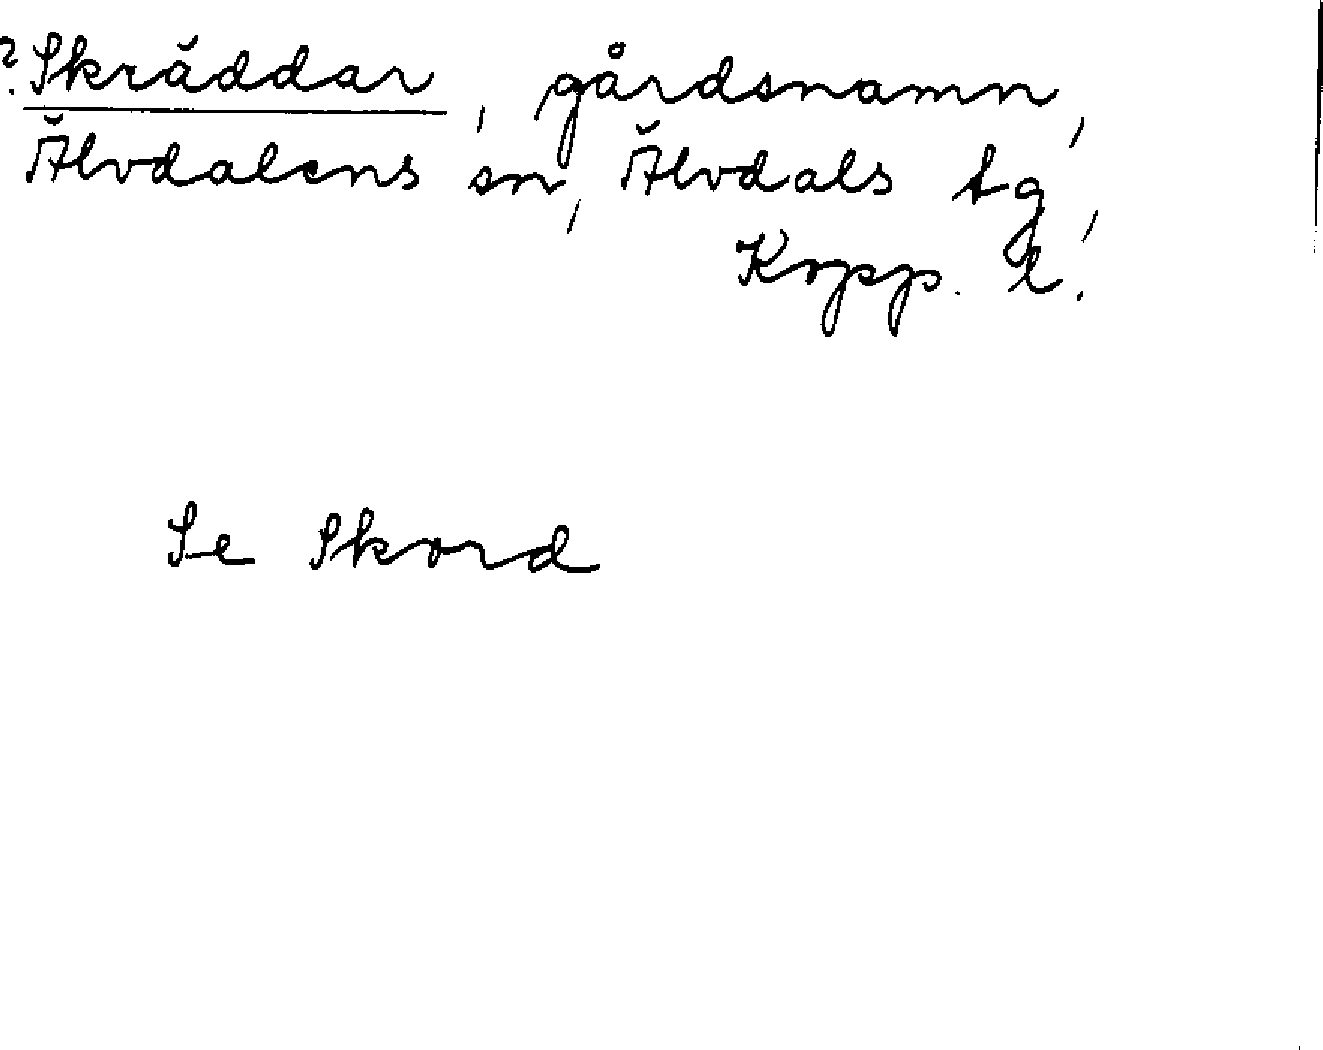 ? Skräddar, gårdsnamn,
Älvdalens sn, Älvdals tg,
Kopp. l.
Se Skord